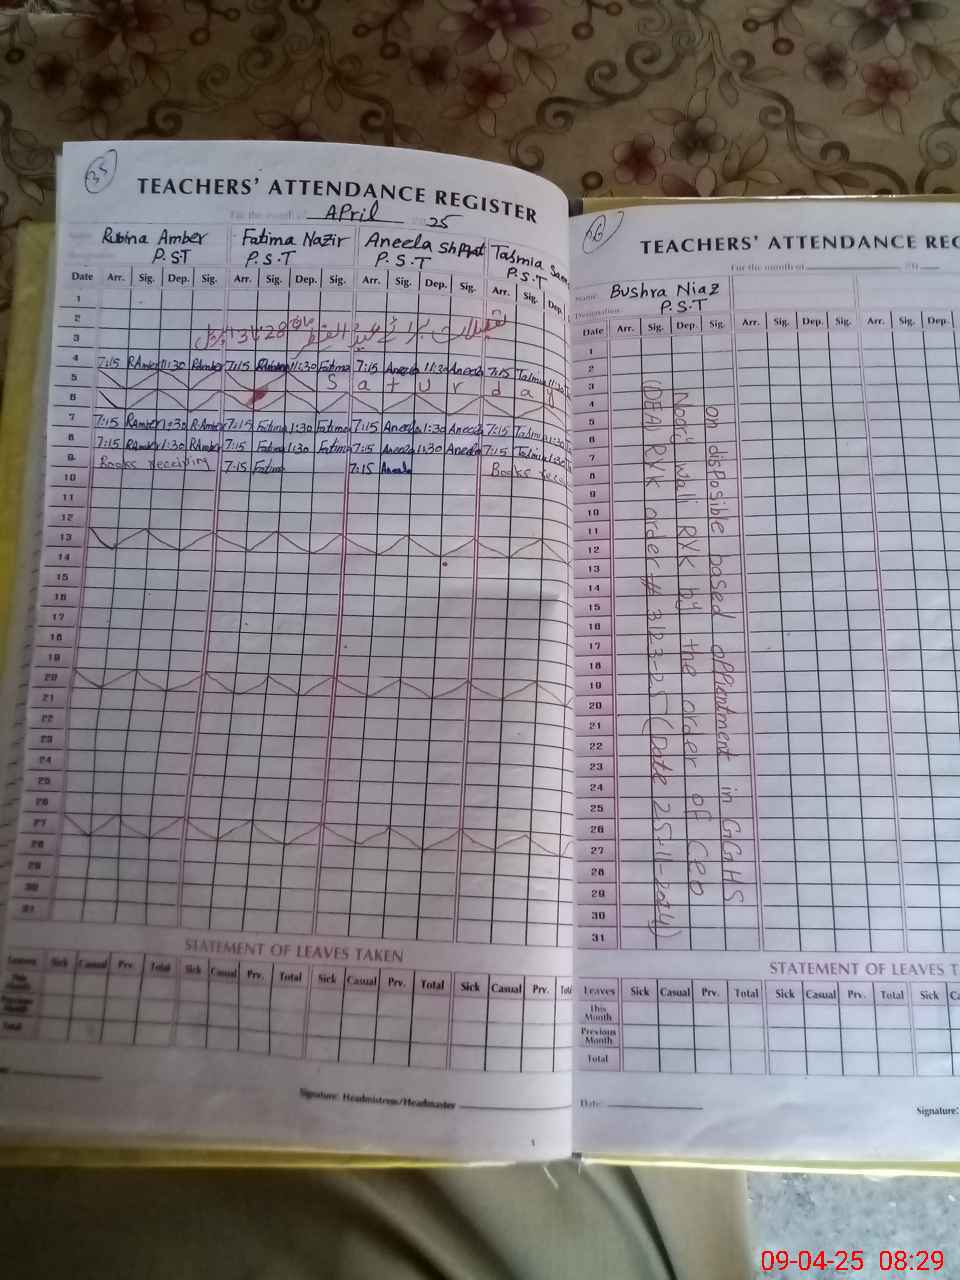 35
TEACHERS' ATTENDANCE REGISTER
For the month of April 25
Rubina Amber Fatima Nazir Aneela Tasmia
P.S.T P.S.T P.S.T P.S.T
Date Arr. Sig. Dep. Sig. Arr. Sig. Dep. Sig. Arr. Sig. Dep. Sig. Arr. Sig. Dep.
1
2
3
4 7:15 RAmber 11:30 RAmber 7:15 11:30 Fatima 7:15 Aneela 11:30 Aneela 7:15 Tasmia 11:30
5 S a t u r d a y
6
7 7:15 RAmber 1:30 RAmber 7:15 Fatima 1:30 Fatima 7:15 Aneela 1:30 Aneela 7:15 Tasmia 1:30
8 7:15 RAmber 1:30 RAmber 7:15 Fatima 1:30 Fatima 7:15 Aneela 1:30 Aneela 7:15 Tasmia 1:30
9 Books receiving 7:15 Fatima 7:15 Aneela Books
10
11
12
13
14
15
16
17
18
19
20
21
22
23
24
25
26
27
28
29
30
31
STATEMENT OF LEAVES TAKEN
Leaves Sick Casual Prv. Total Sick Casual Prv. Total Sick Casual Prv. Total Sick Casual Prv.
This Month
Previous Month
Total
Signature: Headmistress/Headmaster
1
36
TEACHERS' ATTENDANCE REG
For the month of
Name: Bushra Niaz
Designation: P.S.T
Date Arr. Sig. Dep. Sig. Arr. Sig. Dep. Sig. Arr. Sig. Dep.
1
2
3
4
5
6
7
8
9
10
11
12
13
14
15
16
17
18
19
20
21
22
23
24
25
26
27
28
29
30
31
on disposible based appiantment in GGHS
Noory wali RYK by the order of CEO
(DEA) RYK order # 3123-25 (Date 25-11-2024)
STATEMENT OF LEAVES T
Leaves Sick Casual Prv. Total Sick Casual Prv. Total Sick
This Month
Previous Month
Total
Date:
Signature:
09-04-25 08:29